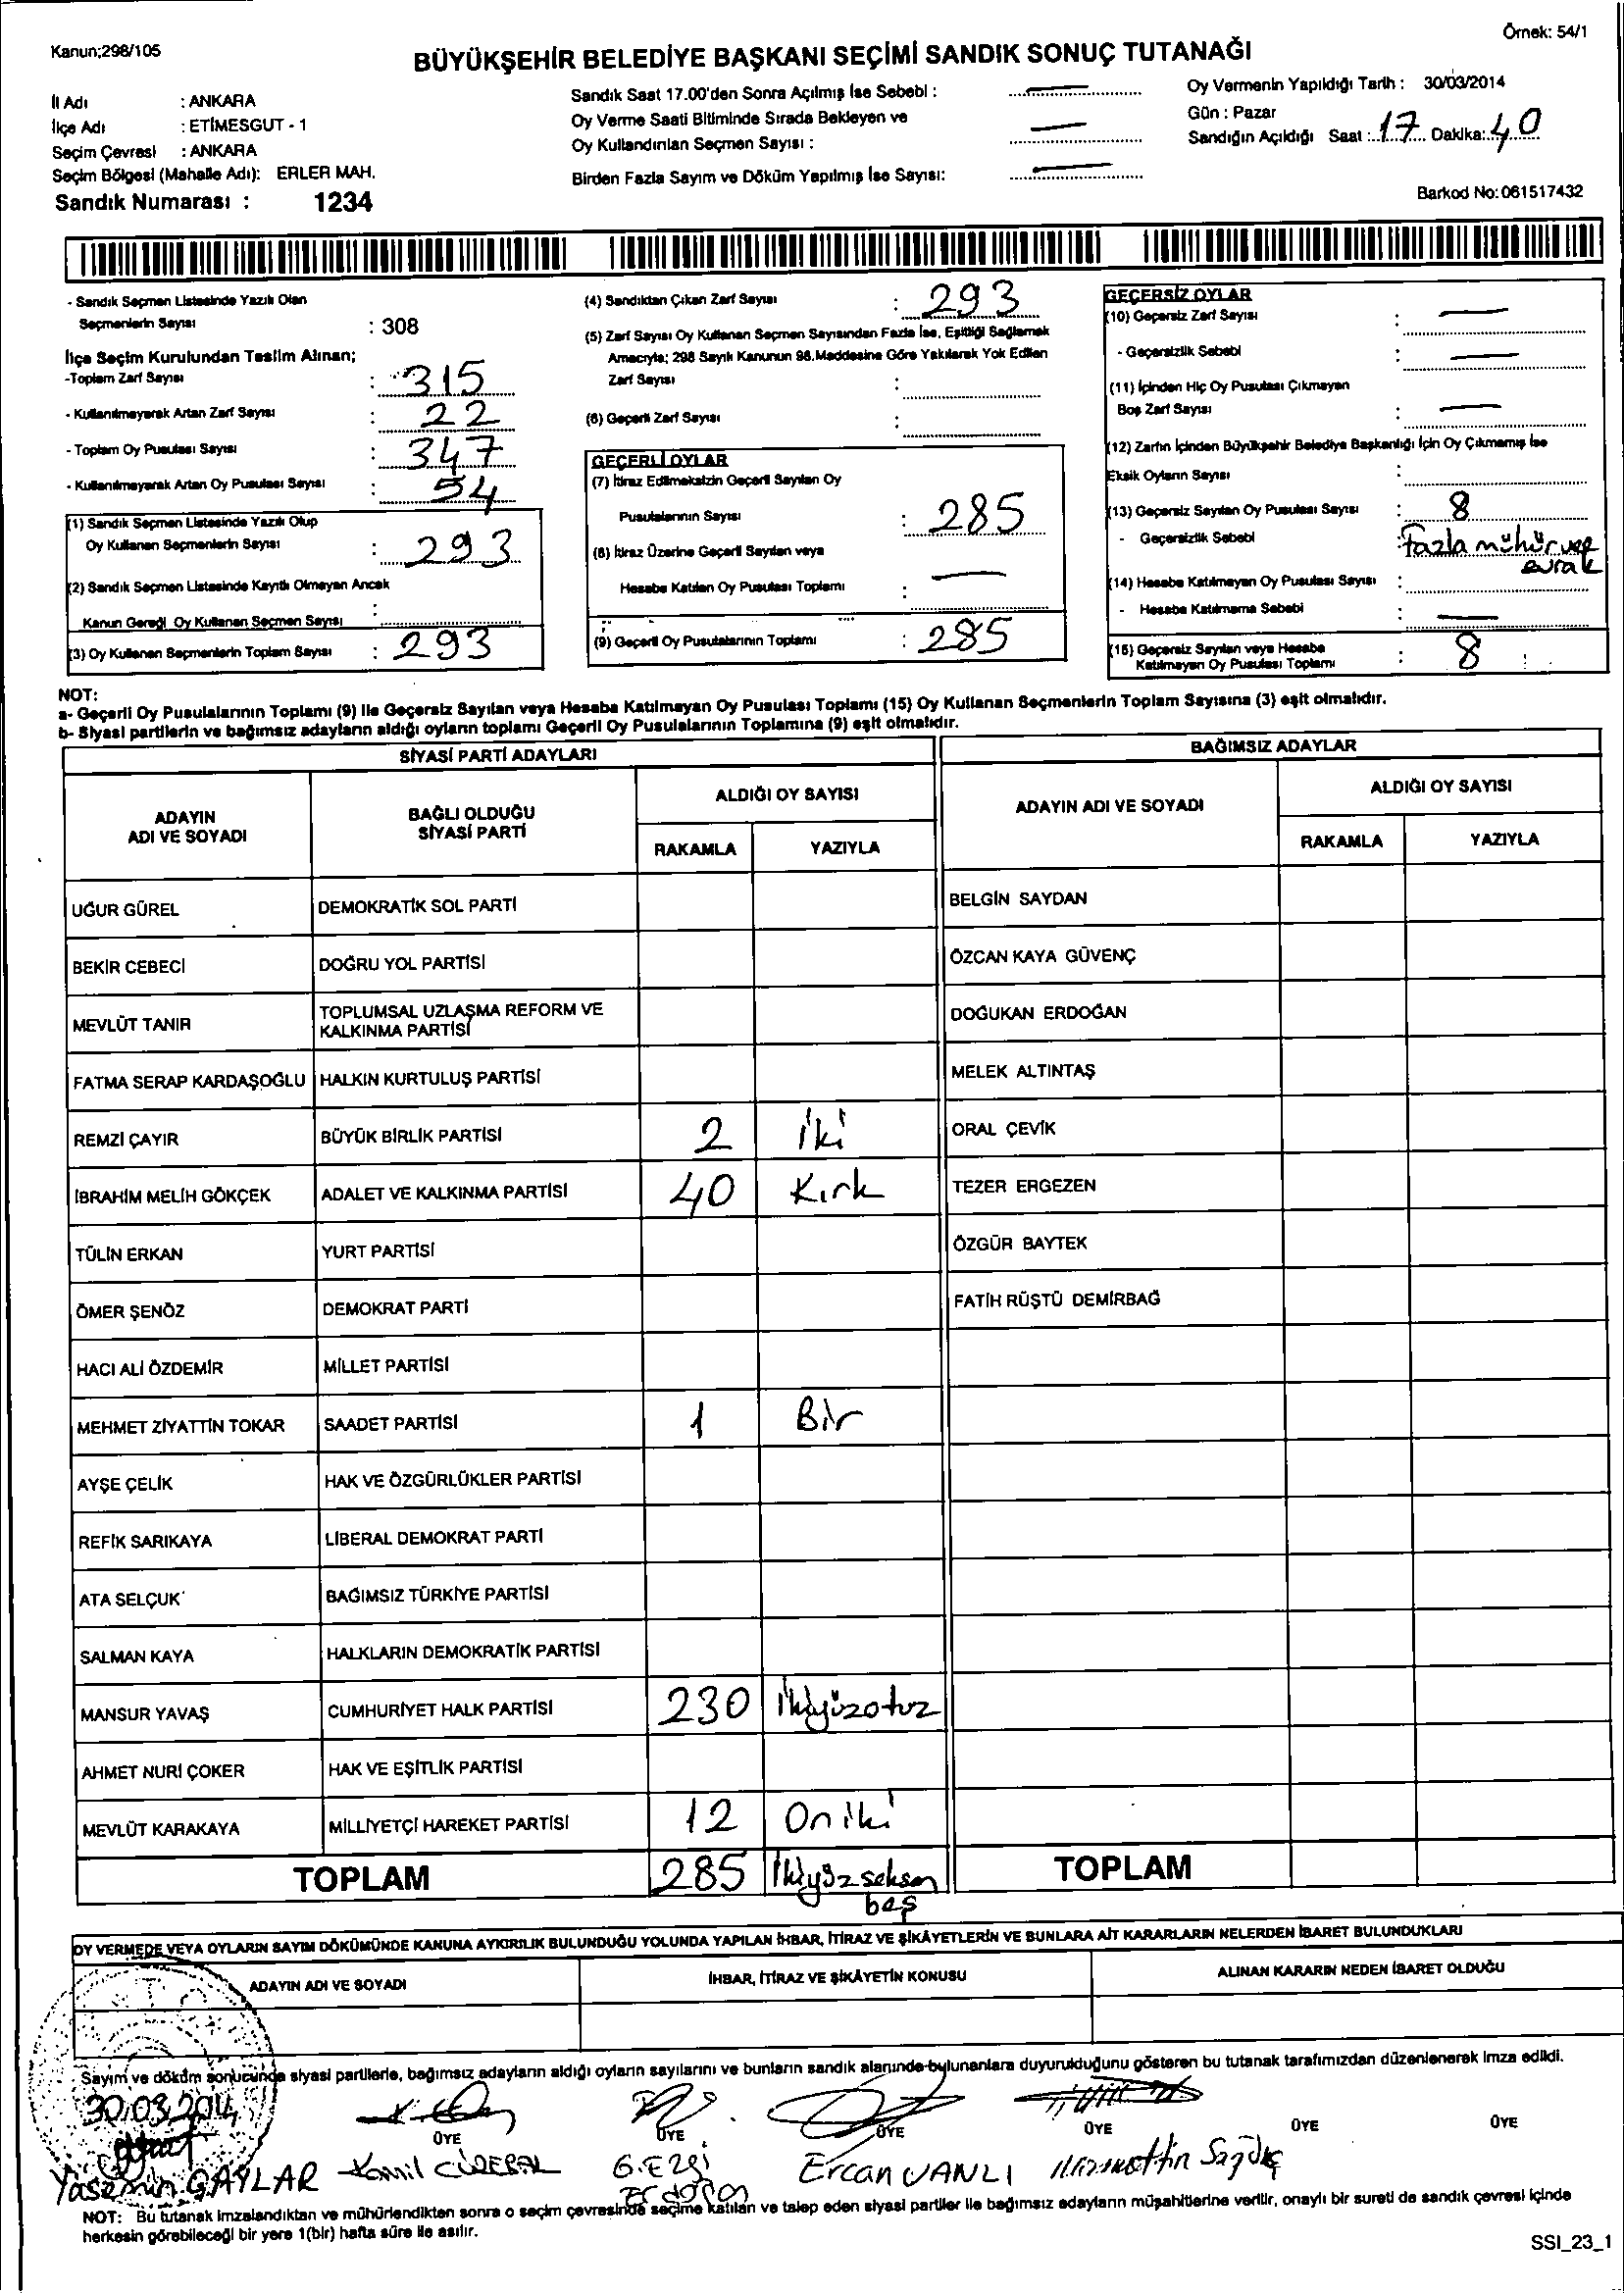 Kanun;298/105
Örnek: 54/1
BÜYÜKŞEHİR BELEDİYE BAŞKANI SEÇİMİ SANDIK SONUÇ TUTANAĞI
İl Adı : ANKARA
İlçe Adı : ETİMESGUT - 1
Seçim Çevresi : ANKARA
Seçim Bölgesi (Mahalle Adı): ERLER MAH.
Sandık Numarası : 1234
Sandık Saat 17.00'den Sonra Açılmış İse Sebebi :
Oy Verme Saati Bitiminde Sırada Bekleyen ve
Oy Kullandırılan Seçmen Sayısı :
Birden Fazla Sayım ve Döküm Yapılmış İse Sayısı:
Oy Vermenin Yapıldığı Tarih : 30/03/2014
Gün : Pazar
Sandığın Açıldığı Saat : 17 Dakika: 40
Barkod No:061517432
- Sandık Seçmen Listesinde Yazılı Olan
Seçmenlerin Sayısı : 308
İlçe Seçim Kurulundan Teslim Alınan;
-Toplam Zarf Sayısı : 315
- Kullanılmayarak Artan Zarf Sayısı : 22
- Toplam Oy Pusulası Sayısı : 347
- Kullanılmayarak Artan Oy Pusulası Sayısı : 54
(1) Sandık Seçmen Listesinde Yazılı Olup
Oy Kullanan Seçmenlerin Sayısı : 293
(2) Sandık Seçmen Listesinde Kayıtlı Olmayan Ancak
Kanun Gereği Oy Kullanan Seçmen Sayısı :
(3) Oy Kullanan Seçmenlerin Toplam Sayısı : 293
(4) Sandıktan Çıkan Zarf Sayısı : 293
(5) Zarf Sayısı Oy Kullanan Seçmen Sayısından Fazla İse, Eşitliği Sağlamak
Amacıyla; 298 Sayılı Kanunun 98.Maddesine Göre Yakılarak Yok Edilen
Zarf Sayısı :
(6) Geçerli Zarf Sayısı :
GEÇERLİ OYLAR
(7) İtiraz Edilmeksizin Geçerli Sayılan Oy
Pusulalarının Sayısı : 285
(8) İtiraz Üzerine Geçerli Sayılan veya
Hesaba Katılan Oy Pusulası Toplamı :
(9) Geçerli Oy Pusulalarının Toplamı : 285
GEÇERSİZ OYLAR
(10) Geçersiz Zarf Sayısı :
- Geçersizlik Sebebi :
(11) İçinden Hiç Oy Pusulası Çıkmayan
Boş Zarf Sayısı :
(12) Zarfın İçinden Büyükşehir Belediye Başkanlığı İçin Oy Çıkmamış İse
Eksik Oyların Sayısı :
(13) Geçersiz Sayılan Oy Pusulası Sayısı : 8
- Geçersizlik Sebebi : fazla mühür ve
evrak
(14) Hesaba Katılmayan Oy Pusulası Sayısı :
- Hesaba Katılmama Sebebi :
(15) Geçersiz Sayılan veya Hesaba
Katılmayan Oy Pusulası Toplamı : 8
NOT:
a- Geçerli Oy Pusulalarının Toplamı (9) ile Geçersiz Sayılan veya Hesaba Katılmayan Oy Pusulası Toplamı (15) Oy Kullanan Seçmenlerin Toplam Sayısına (3) eşit olmalıdır.
b- Siyasi partilerin ve bağımsız adayların aldığı oyların toplamı Geçerli Oy Pusulalarının Toplamına (9) eşit olmalıdır.
SİYASİ PARTİ ADAYLARI BAĞIMSIZ ADAYLAR
ADAYIN ADI VE SOYADI BAĞLI OLDUĞU SİYASİ PARTİ ALDIĞI OY SAYISI ADAYIN ADI VE SOYADI ALDIĞI OY SAYISI
RAKAMLA YAZIYLA RAKAMLA YAZIYLA
UĞUR GÜREL DEMOKRATİK SOL PARTİ BELGİN SAYDAN
BEKİR CEBECİ DOĞRU YOL PARTİSİ ÖZCAN KAYA GÜVENÇ
MEVLÜT TANIR TOPLUMSAL UZLAŞMA REFORM VE KALKINMA PARTİSİ DOĞUKAN ERDOĞAN
FATMA SERAP KARDAŞOĞLU HALKIN KURTULUŞ PARTİSİ MELEK ALTINTAŞ
REMZİ ÇAYIR BÜYÜK BİRLİK PARTİSİ 2 iki ORAL ÇEVİK
İBRAHİM MELİH GÖKÇEK ADALET VE KALKINMA PARTİSİ 40 Kırk TEZER ERGEZEN
TÜLİN ERKAN YURT PARTİSİ ÖZGÜR BAYTEK
ÖMER ŞENÖZ DEMOKRAT PARTİ FATİH RÜŞTÜ DEMİRBAĞ
HACI ALİ ÖZDEMİR MİLLET PARTİSİ
MEHMET ZİYATTİN TOKAR SAADET PARTİSİ 1 Bir
AYŞE ÇELİK HAK VE ÖZGÜRLÜKLER PARTİSİ
REFİK SARIKAYA LİBERAL DEMOKRAT PARTİ
ATA SELÇUK BAĞIMSIZ TÜRKİYE PARTİSİ
SALMAN KAYA HALKLARIN DEMOKRATİK PARTİSİ
MANSUR YAVAŞ CUMHURİYET HALK PARTİSİ 230 ikiyüzotuz
AHMET NURİ ÇOKER HAK VE EŞİTLİK PARTİSİ
MEVLÜT KARAKAYA MİLLİYETÇİ HAREKET PARTİSİ 12 Oniki
TOPLAM 285 ikiyüz seksen beş TOPLAM
OY VERMEDE VEYA OYLARIN SAYIM DÖKÜMÜNDE KANUNA AYKIRILIK BULUNDUĞU YOLUNDA YAPILAN İHBAR, İTİRAZ VE ŞİKÂYETLERİN VE BUNLARA AİT KARARLARIN NELERDEN İBARET BULUNDUKLARI
ADAYIN ADI VE SOYADI İHBAR, İTİRAZ VE ŞİKÂYETİN KONUSU ALINAN KARARIN NEDEN İBARET OLDUĞU
Sayım ve döküm sonucunda siyasi partilerle, bağımsız adayların aldığı oyların sayılarını ve bunların sandık alanında bulunanlara duyurulduğunu gösteren bu tutanak tarafımızdan düzenlenerek imza edildi.
30.03.2014
ÜYE ÜYE ÜYE ÜYE ÜYE ÜYE
Yasemin Kamil G.Ezgi Erdoğan Ercan VANLI
NOT: Bu tutanak imzalandıktan ve mühürlendikten sonra o seçim çevresinde seçime katılan ve talep eden siyasi partiler ile bağımsız adayların müşahitlerine verilir, onaylı bir sureti de sandık çevresi içinde
herkesin görebileceği bir yere 1(bir) hafta süre ile asılır.
SSI_23_1